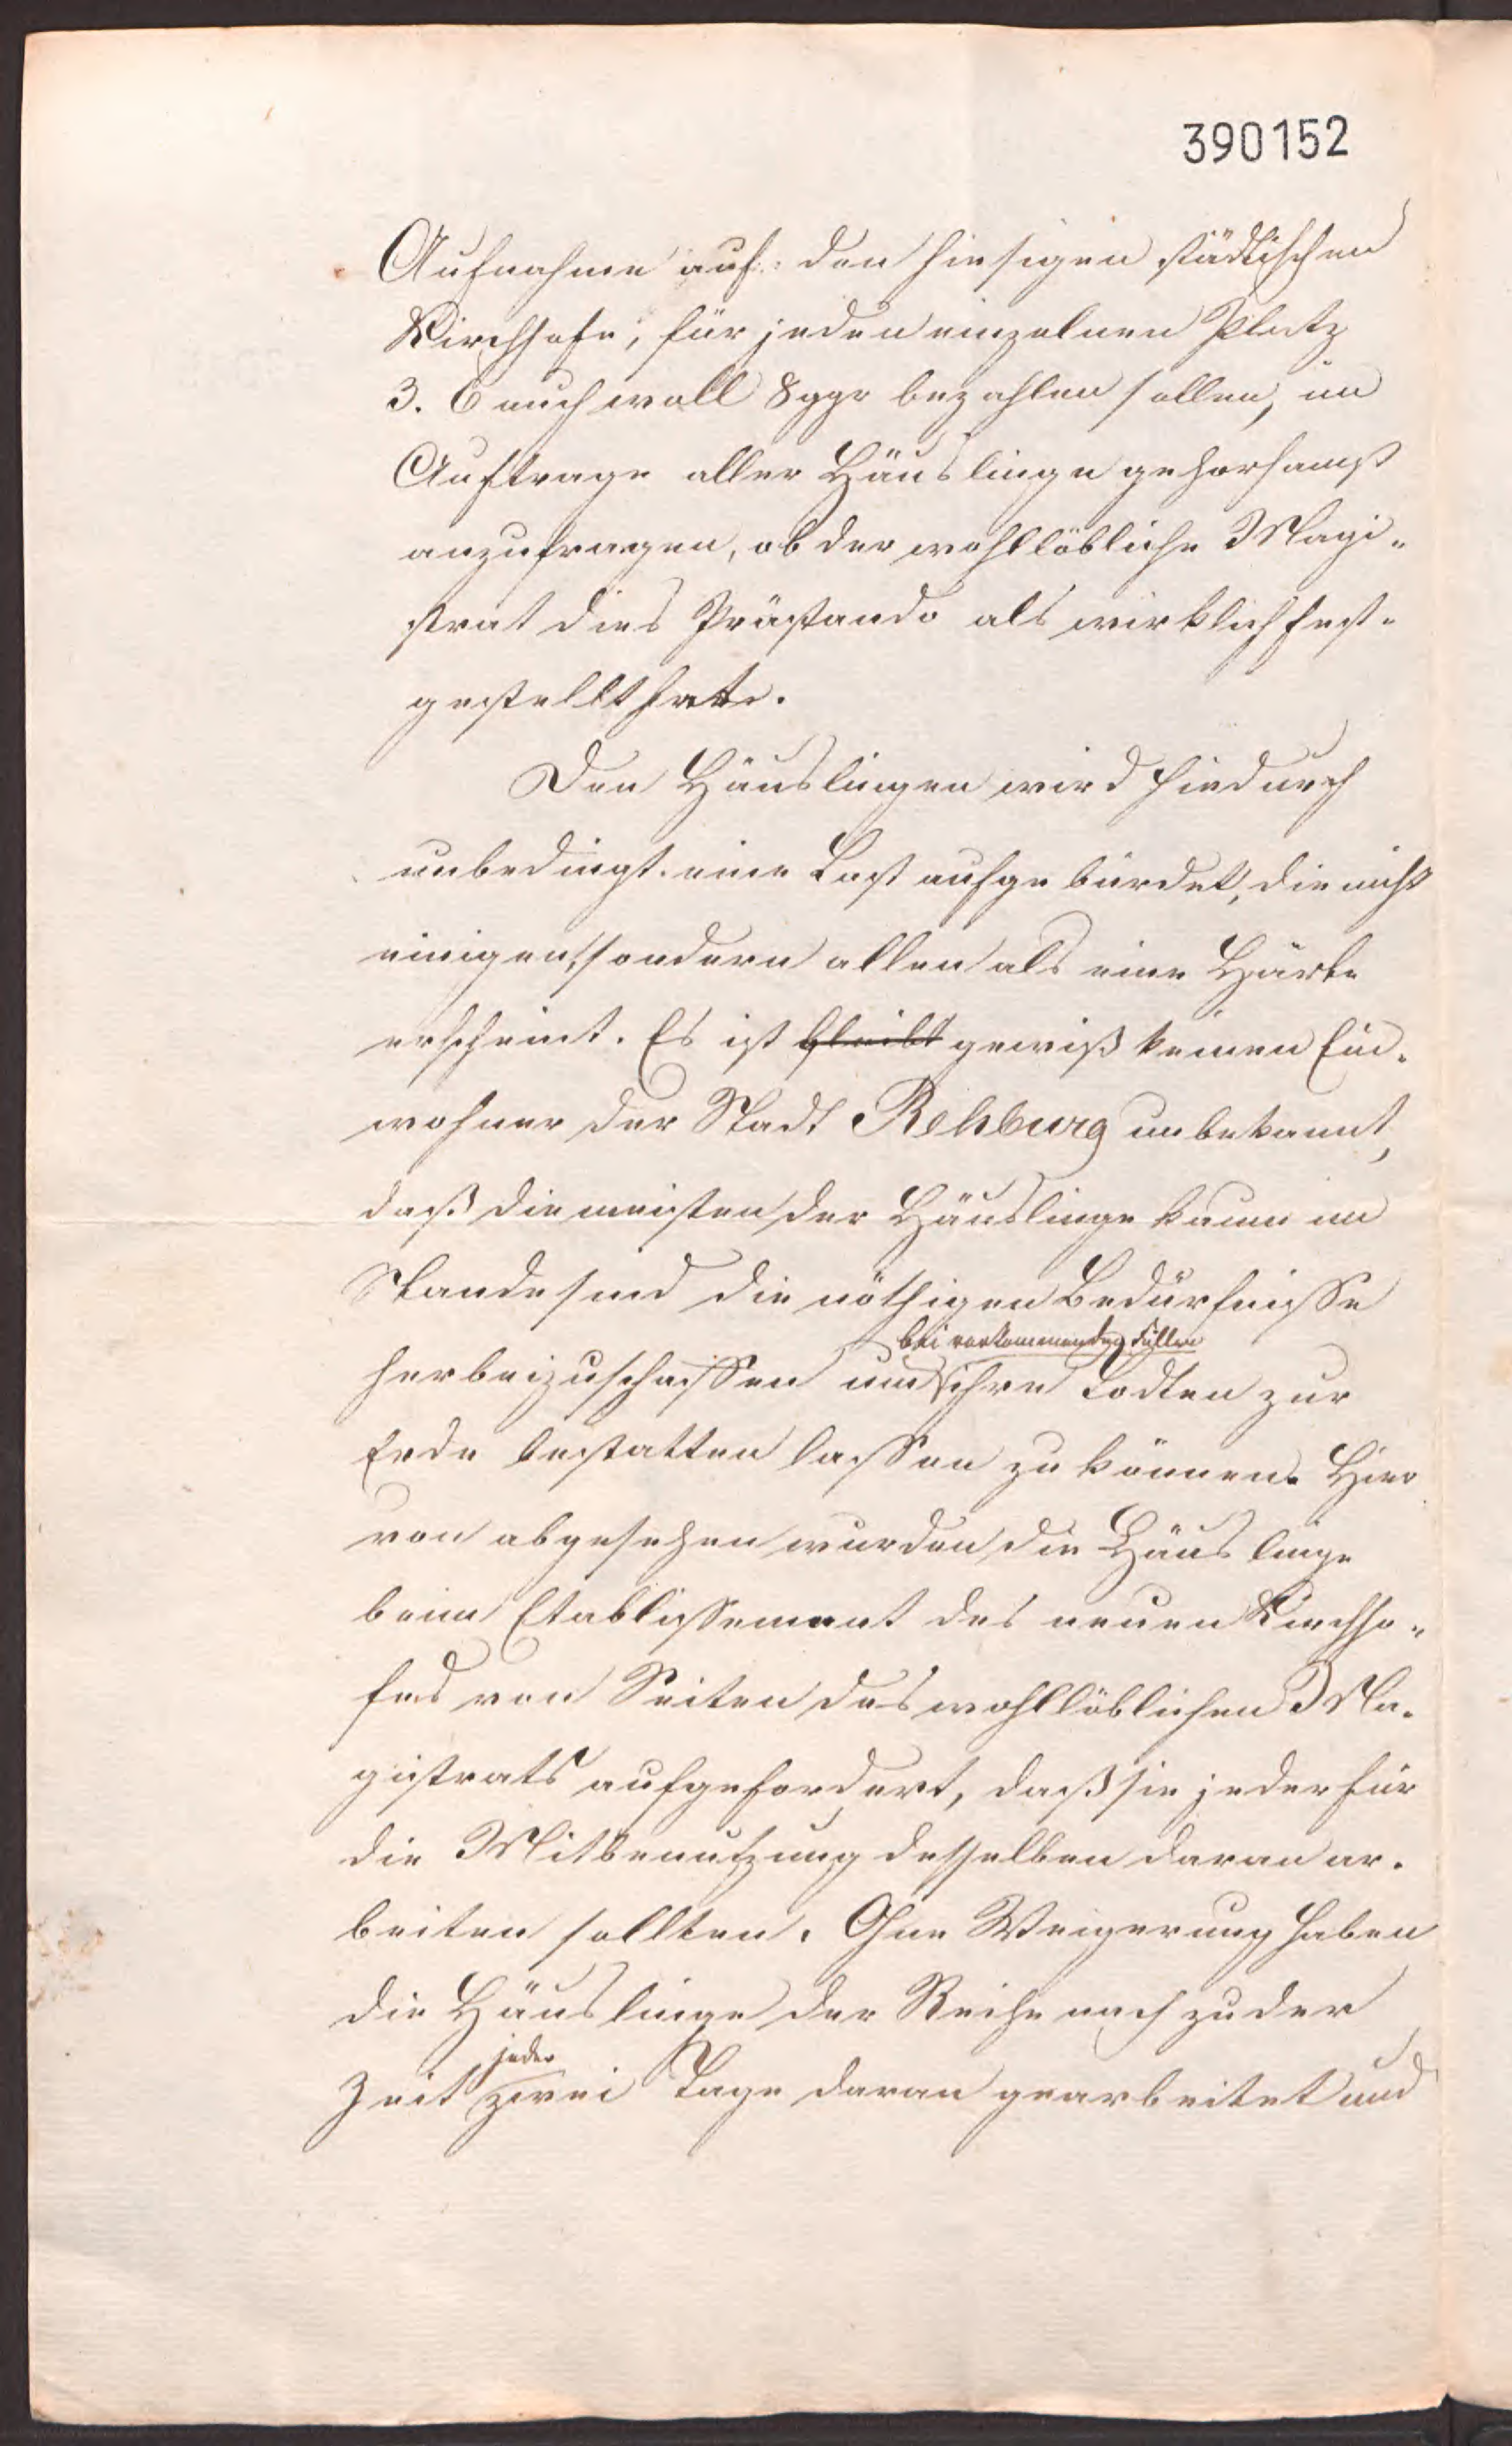 390152
Aufnahme auf den hiesigen städtischen
Kirchhofe, für jeden einzelnen Platz
3. 6 auch woll 8 ggr bezahlen sollen, im
Auftrage aller Häuslinge gehorsamst
anzufragen, ob der wohllöbliche Magi-
strat dies Prästando als wirklich fest-
gestellt hatte.
Den Häuslingen wird hiedurch
unbedingt eine Last aufgebürdet, die nicht
einigen, sondern allen als eine Härte
erscheint. Es ist bleibt gewiß keinen Ein-
wohner der Stadt Rehburg unbekannt,
daß die meisten der Häuslinge kaum im
Stande sind die nöthigen Bedürfnisse
bei vorkommenden Fällen
herbeizuschaffen um ihre Todten zur
Erde bestatten lassen zu können. Hier
von abgesehen wurden die Häuslinge
beim Etablissement des neuen Kirchho-
fes von Seiten des wohllöblichen Ma-
gistrats aufgefordert, daß sie jeder für
die Mitbenutzung desselben daran ar-
beiten sollten. Ohne Weigerung haben
die Häuslinge der Reihe nach zu der
jeder
Zeit zwei Tage daran gearbeitet und